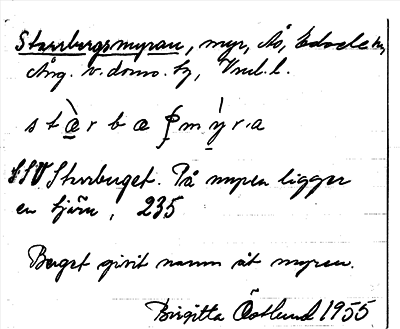 Starrbergsmyran, myr, Ås, Edsele sn,
Ång. v. doms. hg, Vnd. l.
st æ r b æ ʂ m y r a
SSV Starrberget. På myren ligger
en tjärn, 235
Berget givit namn åt myren.
Birgitta Östlund 1955